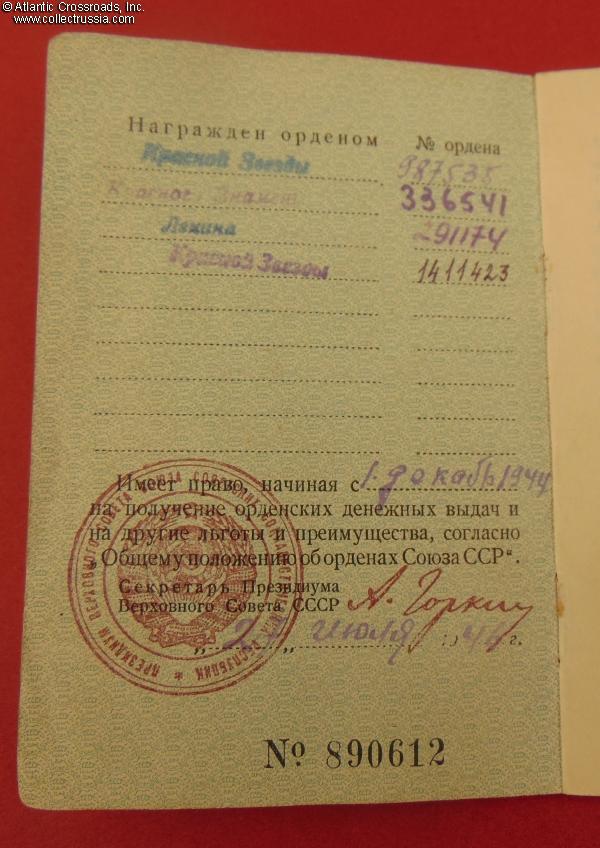 © Atlantic Crossroads, Inc.
www.collectrussia.com
Награжден орденом № ордена
Красной Звезды 987535
Красного Знамени 336541
Ленина 291174
Красной Звезды 1411423
Имеет право, начиная с 1 декабря 1944
на получение орденских денежных выдач и
на другие льготы и преимущества, согласно
„Общему положению об орденах Союза ССР“.
Секретарь Президиума
Верховного Совета СССР А. Горкин
„27„ июля 1946 г.
ПРЕЗИДИУМ ВЕРХОВНОГО СОВЕТА СОЮЗА СОВЕТСКИХ СОЦИАЛИСТИЧЕСКИХ РЕСПУБЛИК *
№ 890612